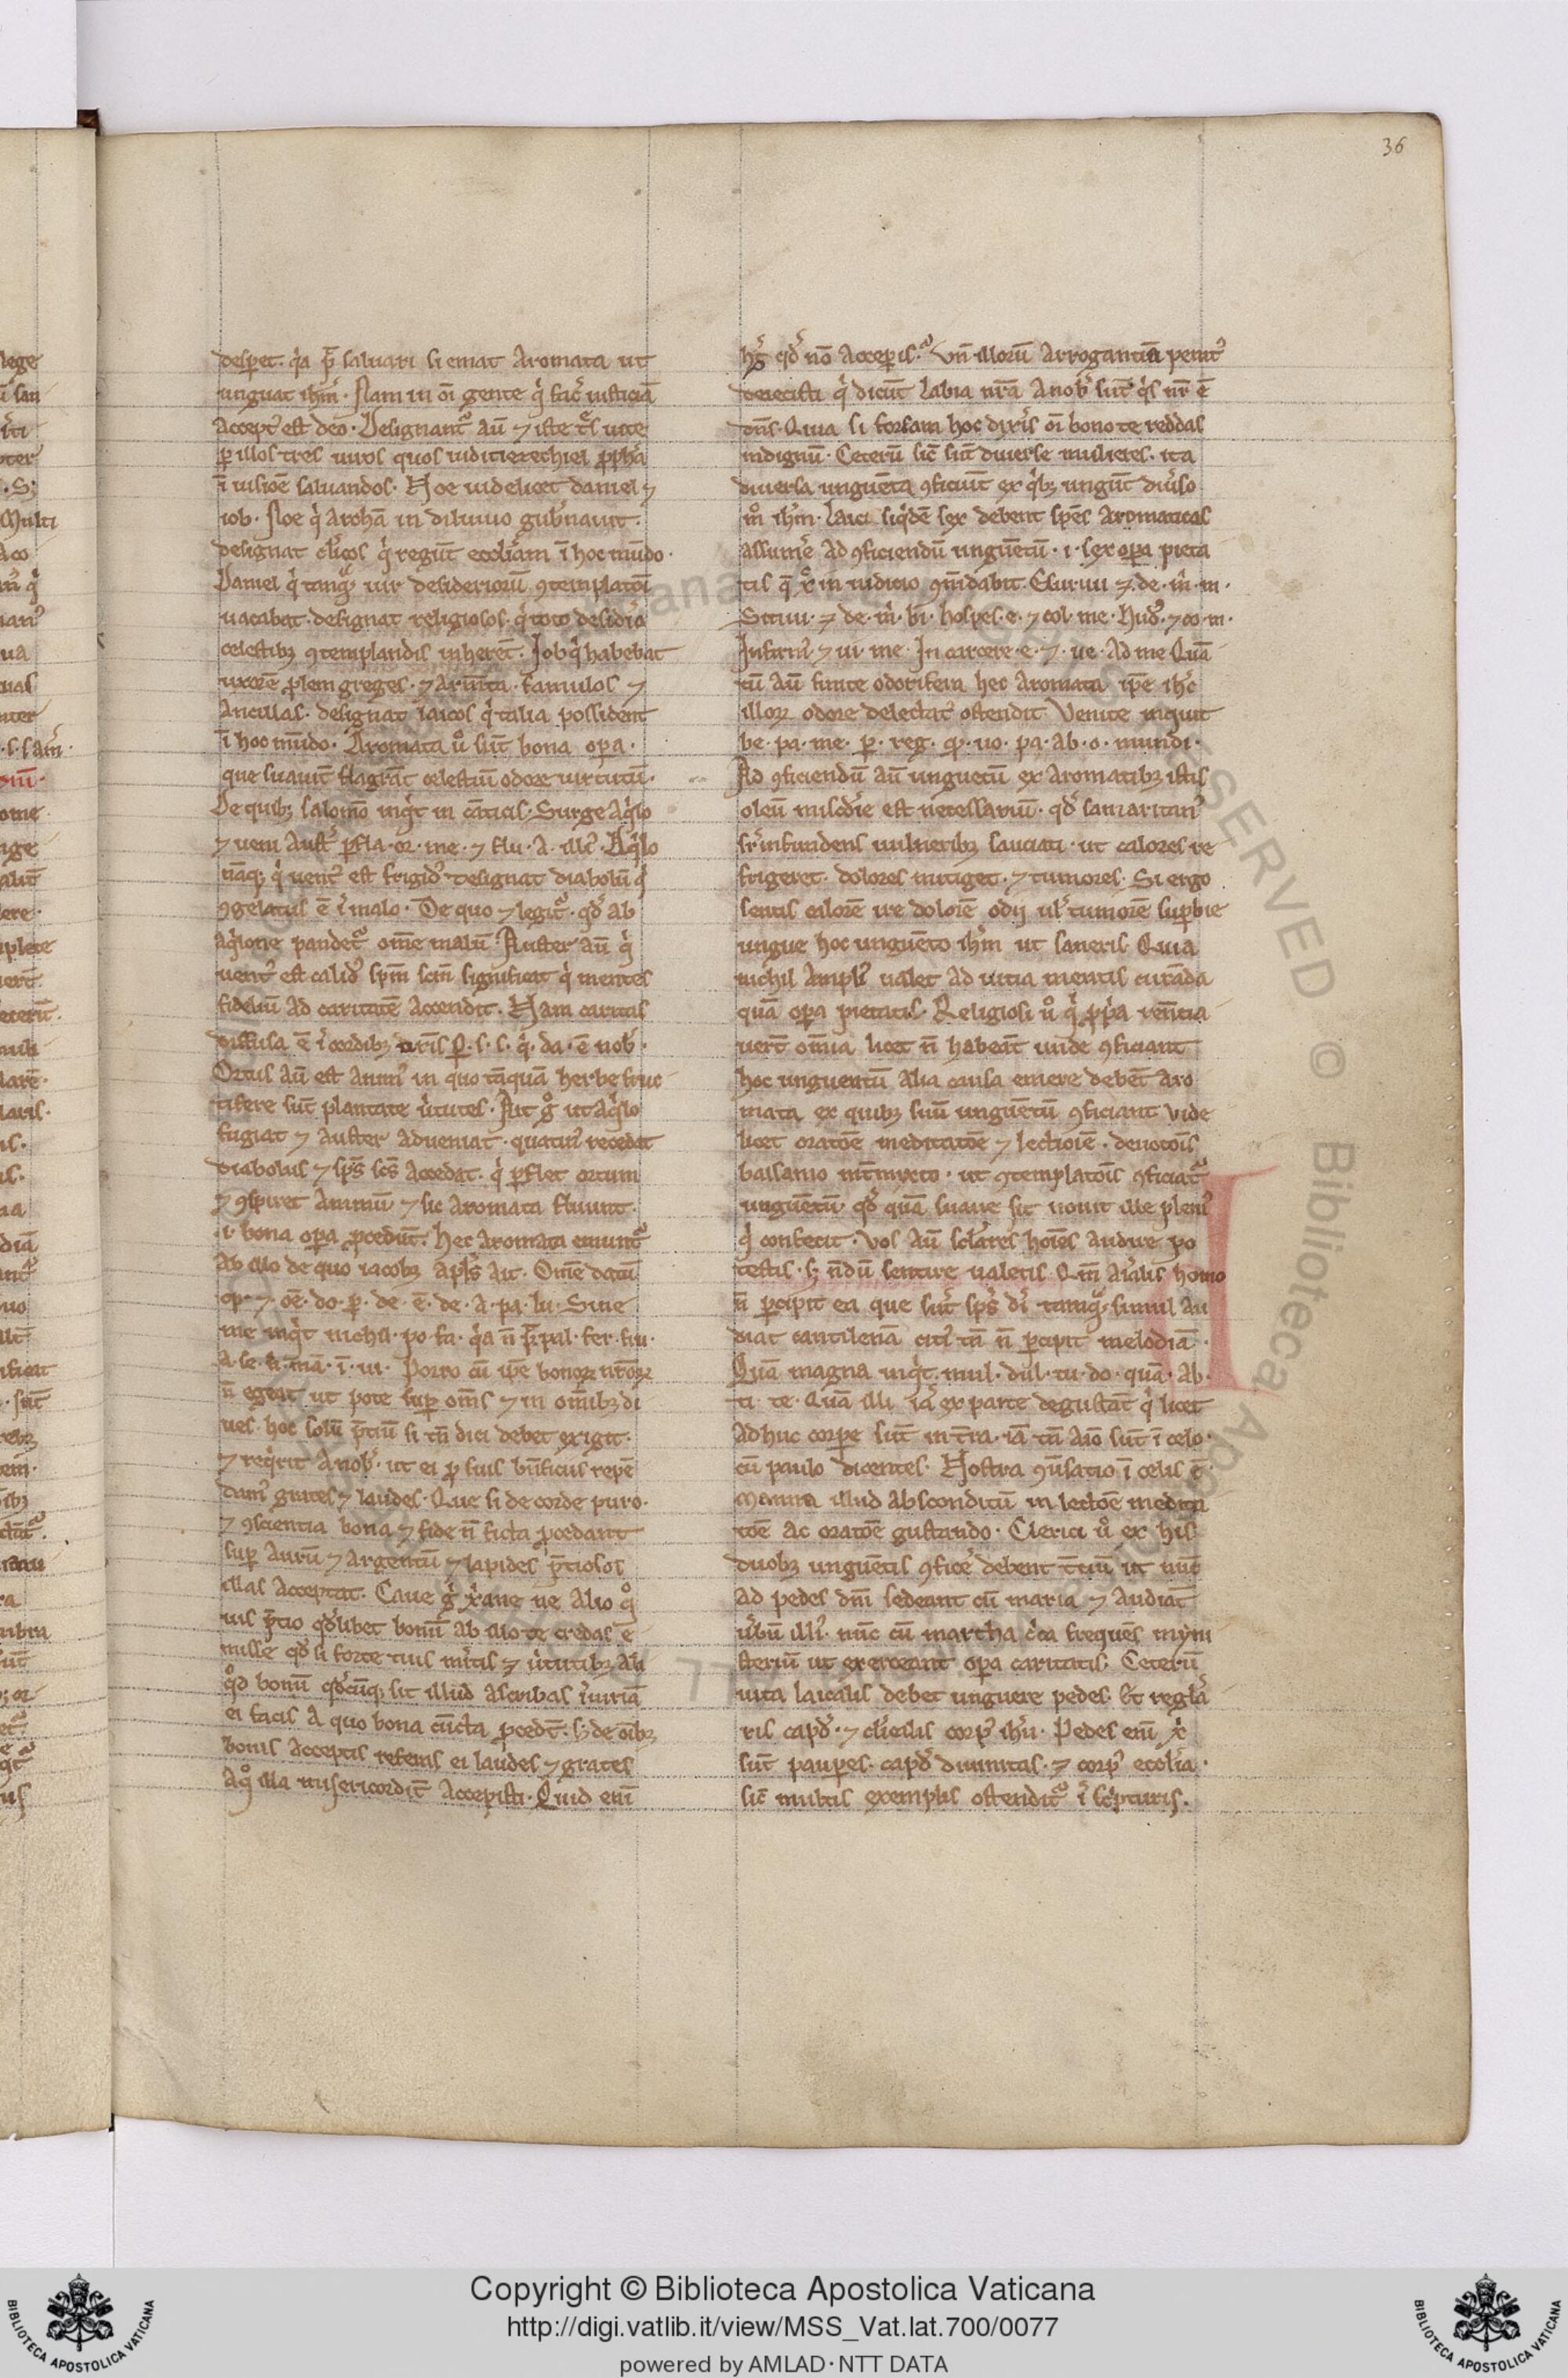 36
desperet. q̉a p̄t saluari si emat Aromata ut
unguat ih̄m. Nam in oī gente q̉ facͥ iusticiā
Accept᷒ est deo. Designant᷑ aū ⁊ iste t͛s uite
ꝑ illos tres uiros quos uidit iezechiel ꝓph̄a
ī uisiōe saluandos. Noe uidelicet daniel ⁊
iob. Noe q̉ Archā in diluuio gub̉nauit.
designat cl̉icos q̉ regūt eccl̉iam ī hoc mūdo.
Daniel q̉ tanq̄ȝ uir desideriorū ꝯtemplatōī
uacabat. designat religiosos. q̉ toto desid̉io
celestibȝ ꝯtemplandis inherēt. Iob q̉ habebat
uxorē ꝓlem greges. ⁊ Arm̄ta. famulos ⁊
Ancillas. designat laicos q̉ talia possident
ī hoc mūdo. Aromata ů sūt bona oꝑa.
que suauit̄ flagrāt celestiū odore uirtutū.
De quibȝ salomō inq̉t in cāticis. Surge Aq̉lo
⁊ ueni Aust̉ ꝑfla. or. me. ⁊ flu. A. illi᷒. Aq̉lo
nāqȝ q̉ uent᷒ est frigid᷒ designat diabolū q̉
ꝯgelatus ē ī malo. De quo ⁊ legit᷑. qd̉ ab
aq̉lone pandet᷑ omē malū. Auster aū q̉
uent᷒ est calid᷒ sp̄m sc̄m significat q̉ mentes
fideliū ad caritatē Accendit. Nam caritas
diffusa ē ī cordibȝ nr̄is ꝑ. s. s. q̉. da. ē nob̉.
Ortus aū est anim᷒ in quo tāquā herbe fruc
tifere sūt plantate u̍tutes. Ait g̊ ut Aq̉lo
fugiat ⁊ Auster adueniat. quatin᷒ recedat
diabolus ⁊ sp̄s sc̄s accedat. q̉ ꝑflet ortum
⁊ ꝯspiret Animū ⁊ sic Aromata fluunt.
.i. bona oꝑa ꝓcedūt. Hec Aromata emunt᷑
Ab illo de quo iacobȝ apl̄s ait. Omē datū
op. ⁊ oē. do. ꝑ. de. ē. de. a. pa. lu. Sine
me inq̉t nichil. po. fa. q̉a n̄ p̄t pal. fer. fru.
a. se. n̉. mā. ī. ui. Porro cū ip̄e bonoꝝ nr̄oꝝ
n̄ egeat ut pote suꝑ om̄s ⁊ in om̄ibȝ di
ues. hoc solū p̄tiū si tn̄ dici debet exigit.
⁊ req̉rit a nob̉. ut ei ꝓ suis bn̄ficiis repē
dam᷒ grates ⁊ laudes. Que si de corde puro.
⁊ ꝯscientia bona ⁊ fide n̄ ficta ꝓcedant
suꝑ Aurū ⁊ Argentū ⁊ lapides p̄tiosos
illas Acceptat. Caue g̊ xp̄iane ne Alio q̊
uis p̄tio qd̉libet bonū ab illo te credas e
misse qd̉ si forte tuis m̉itis ⁊ u̍tutibȝ ali
q̊d bonū qd̉cūqȝ sit illud Ascribas iniuriā
ei facis A quo bona cūcta ꝓcedūt. sȝ de oībȝ
bonis Acceptis referas ei laudes ⁊ grates
A q̊ illa misericordit̄ Accepisti. Quid enī
h̄s qd̉ nō Acceꝑis.᷑ Vn̄ illorū Arrogantiā penit᷒
deiecisti q̉ dicūt labia nr̄a a nob̉ sūt q̉s nr̄ ē
dn̄s. Quia si forsam hoc dix̉is oī bono te reddas
indignū. Ceterū sic̄ sūt diuerse mulieres. ita
diuersa unguēta ꝯficiūt ex q̉bȝ ungūt diu̍so
m̊ ih̄m. Laici siq̉dē sex debent sp̄es aromaticas
assum̉e ad ꝯficiendū unguētū. .i. sex oꝑa pieta
tis q̄ xp̄c in iudicio ꝯm̄dabit. Esuriui ⁊ de. m̉. m.
Sitiui. ⁊ de. m̉. bi. hospes. e. ⁊ col. me. Nud᷒. ⁊ co. m.
Infirm᷒. ⁊ ui. me. In carcere. e. ⁊. ue. Ad me Quā
tū aū sint odorifera hec Aromata ip̄e ih̄c
illoꝝ odore delectat᷒ ostendit. Venite inquit
be. pa. me. ꝑ. reg. q̄. uo. pa. ab. o. mundi.
Ad ꝯficiendū aū unguētū ex Aromatibȝ istis
oleū mis̄cdie est necessariū. qd̉ samaritan᷒
fr̉ infundens uulneribȝ sauciati. ut calores re
frigeret. dolores mitiget. ⁊ tumores. Si ergo
sentis calorē ire dolorē odij ul̉ tumorē suꝑbie
ungue hoc unguēto ih̄m ut saneris. Quia
nichil Ampli᷒ ualet ad uitia mentis curāda
quā oꝑa pietatis. Religiosi ů q̉ ꝓp̉a reliq̄
uer̄t omnia licet n̄ habeāt unde ꝯficiant
hoc unguentū Alia causa emere debēt Aro
mata ex quibȝ suū unguētū ꝯficiant vide
licet oratōē meditatōē ⁊ lectionē. deuotōīs
balsamo int̄mixto. ut ꝯtemplatōīs ꝯficiat᷑
unguētū. qd̉ quā suaue sit nouit ille pleni᷒
q̉ confecit. Vos aū sclares hoīes audire po
testis. sȝ n̄dū sentire ualetis. Qm̄ ai̍alis homo
n̄ ꝑcipit ea que sūt sp̄s di̍. tamqȝ simul au
diat cantilenā cit᷒ tn̄ n̄ ꝑcipit melodiā.
Quā magna inq̉t. mul. dul. tu. do. quā. ab.
ti. te. Quā illi iā ex parte degustāt q̉ licet
adhuc corꝑe sūt in t̄ra. iā tn̄ aīo sūt ī celo.
cū paulo dicentes. Nostra ꝯu̍satio ī celis ē.
Manna illud absconditū in lectōe medita
tōe ac oratōe gustando. Clerici ů ex his
duobȝ unguētis ꝯfic̉e debent t̄tiū ut nūc
ad pedes dn̄i sedeant cū maria ⁊ audiāt
u̍bū illi᷒. nūc cū martha c̉ca frequēs myni
steriū ut exerceant oꝑa caritatis. Ceterū
uita laicalis debet unguere pedes. Et regl̄a
ris capd᷒. ⁊ cl̉icalis corp᷒ ih̄u. Pedes enī xp̄i
sūt pauꝑes. capd᷒ diuinitas. ⁊ corp᷒ eccl̉ia.
sic̄ multis exemplis ostendit᷑ ī sc̉pturis.
I
Copyright © Biblioteca Apostolica Vaticana
http://digi.vatlib.it/view/MSS_Vat.lat.700/0077
powered by AMLAD·NTT DATA
BIBLIOTECA APOSTOLICA VATICANA
BIBLIOTECA APOSTOLICA VATICANA